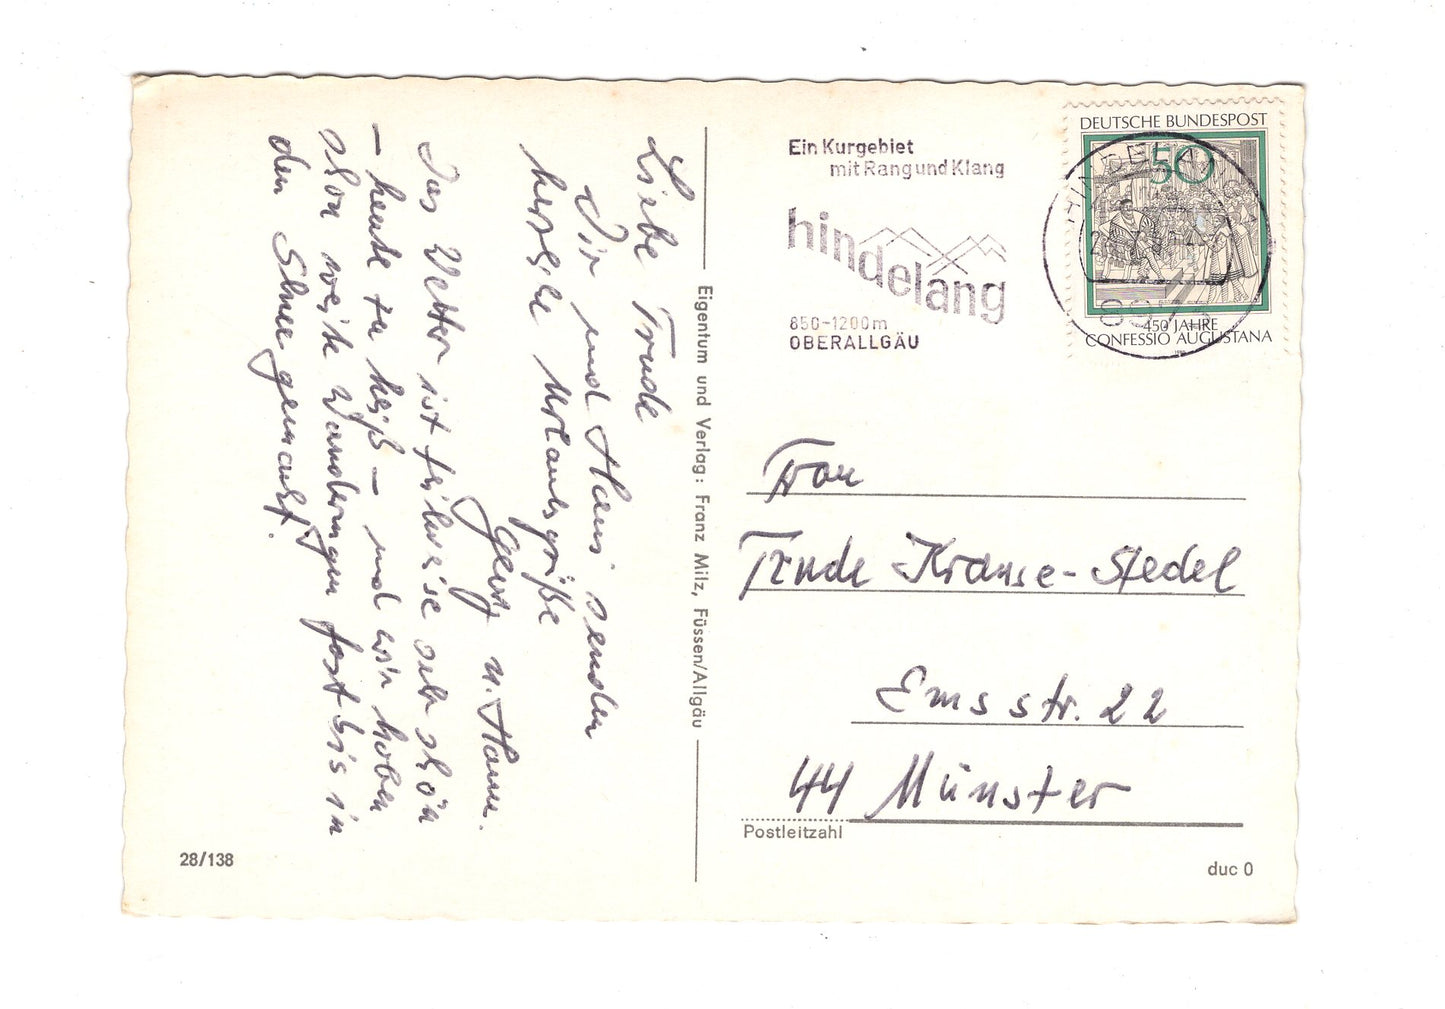 Liebe Trude
Dir und Hans senden
herzliche Urlaubsgrüße
Georg u. Hann.
Das Wetter ist teilweise sehr schön
– heute zu heiß – und wir haben
schon weite Wanderungen fast bis in
den Schnee gemacht.
Eigentum und Verlag: Franz Milz, Füssen/Allgäu
28/138
Ein Kurgebiet
mit Rang und Klang
hindelang
850-1200m
OBERALLGÄU
DEUTSCHE BUNDESPOST
50
450 JAHRE
CONFESSIO AUGUSTANA
HINDELANG
Frau
Trude Krause-Stedel
Emsstr. 22
44 Münster
Postleitzahl
duc 0